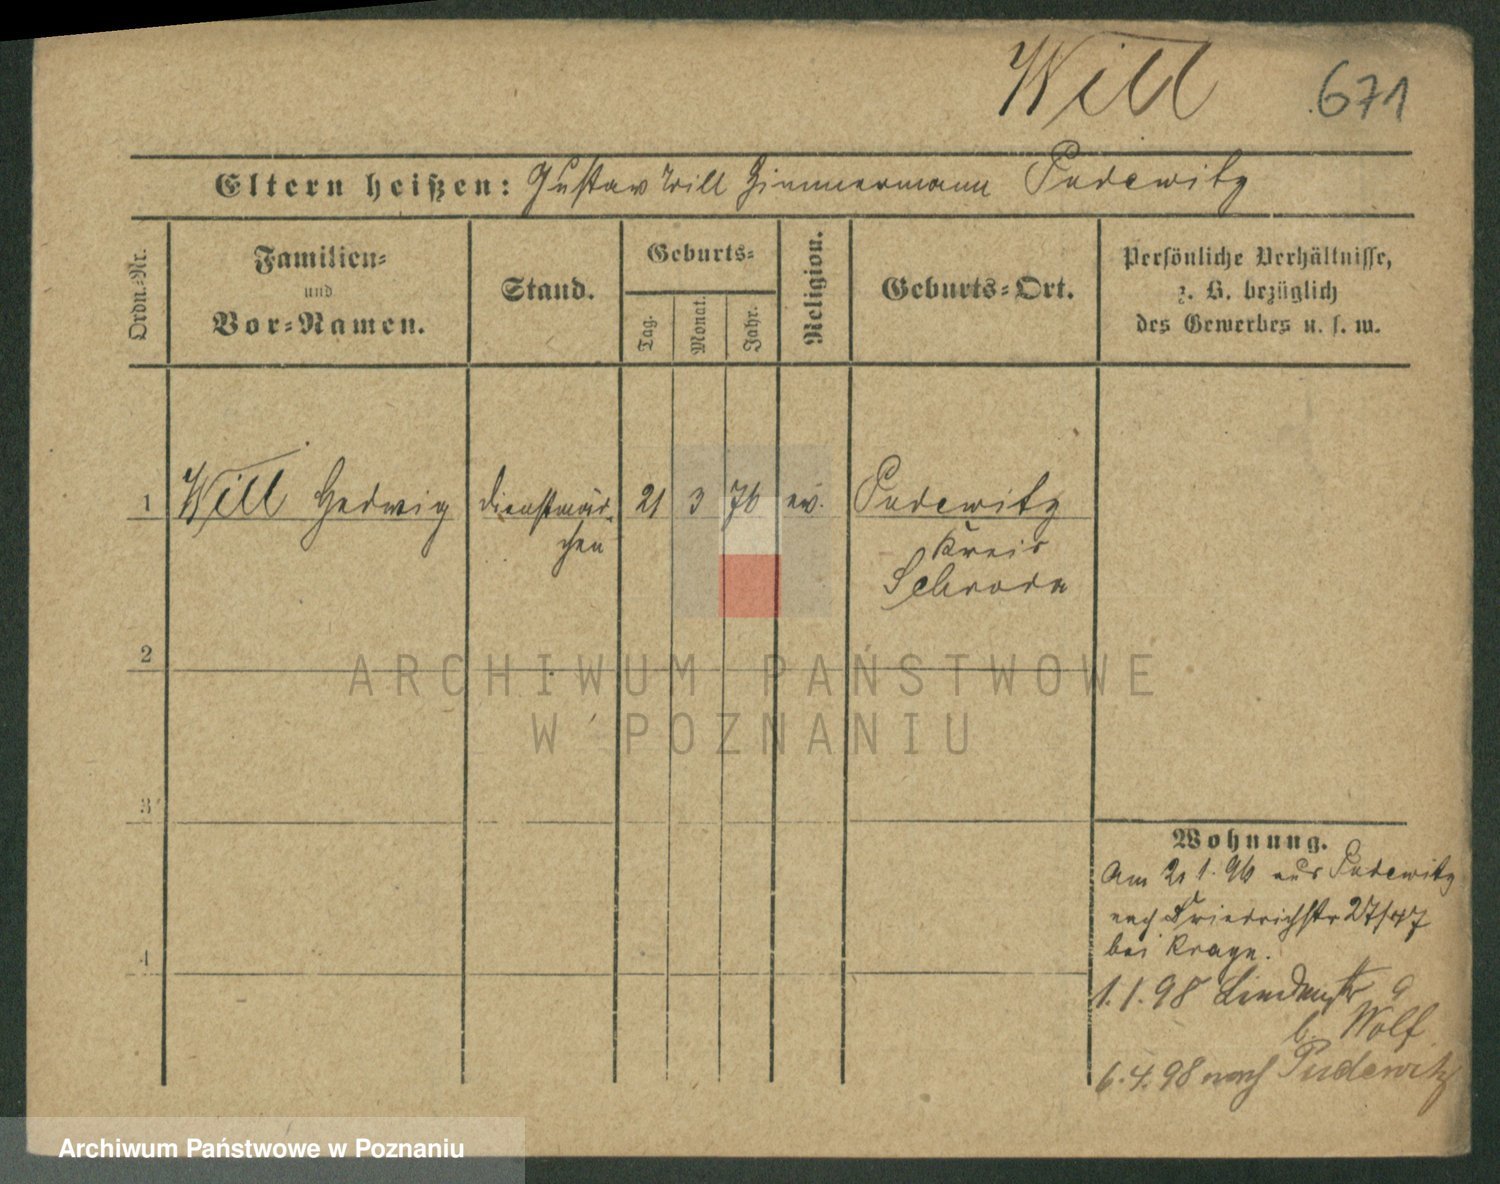 Will 671
Eltern heißen: Gustav Will Zimmermann Pudewitz
Ordn.-Nr.
Familien-
und
Vor-Namen.
Stand.
Geburts-
Tag.
Monat.
Jahr.
Religion.
Geburts-Ort.
Persönliche Verhältnisse,
z. B. bezüglich
des Gewerbes u. s. w.
1 Will Hedwig Dienstmäd- 21 3 76 ev. Pudewitz
chen Kreis
Schroda
2
ARCHIWUM PAŃSTWOWE
W POZNANIU
3
Wohnung.
Am 21.1.96 aus Pudewitz
nach Friedrichstr 27/
bei
4
1.1.98 Lindenstr 9
b. Wolf
6.4.98 nach Pudewitz
Archiwum Państwowe w Poznaniu